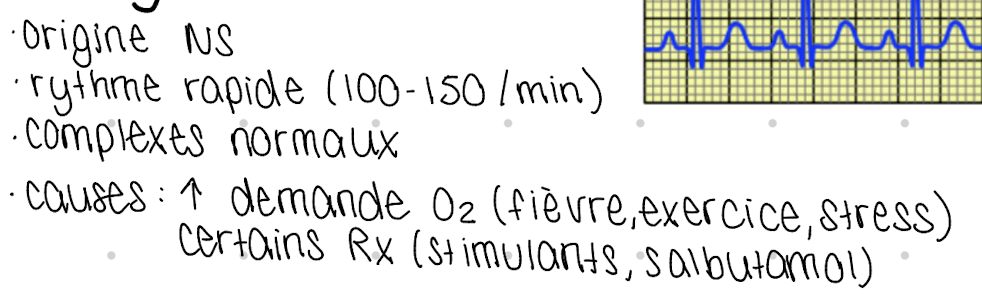 ·origine NS
·rythme rapide (100-150/min)
·complexes normaux
·causes: ↑ demande O₂ (fièvre, exercice, stress)
certains Rx (stimulants, salbutamol)